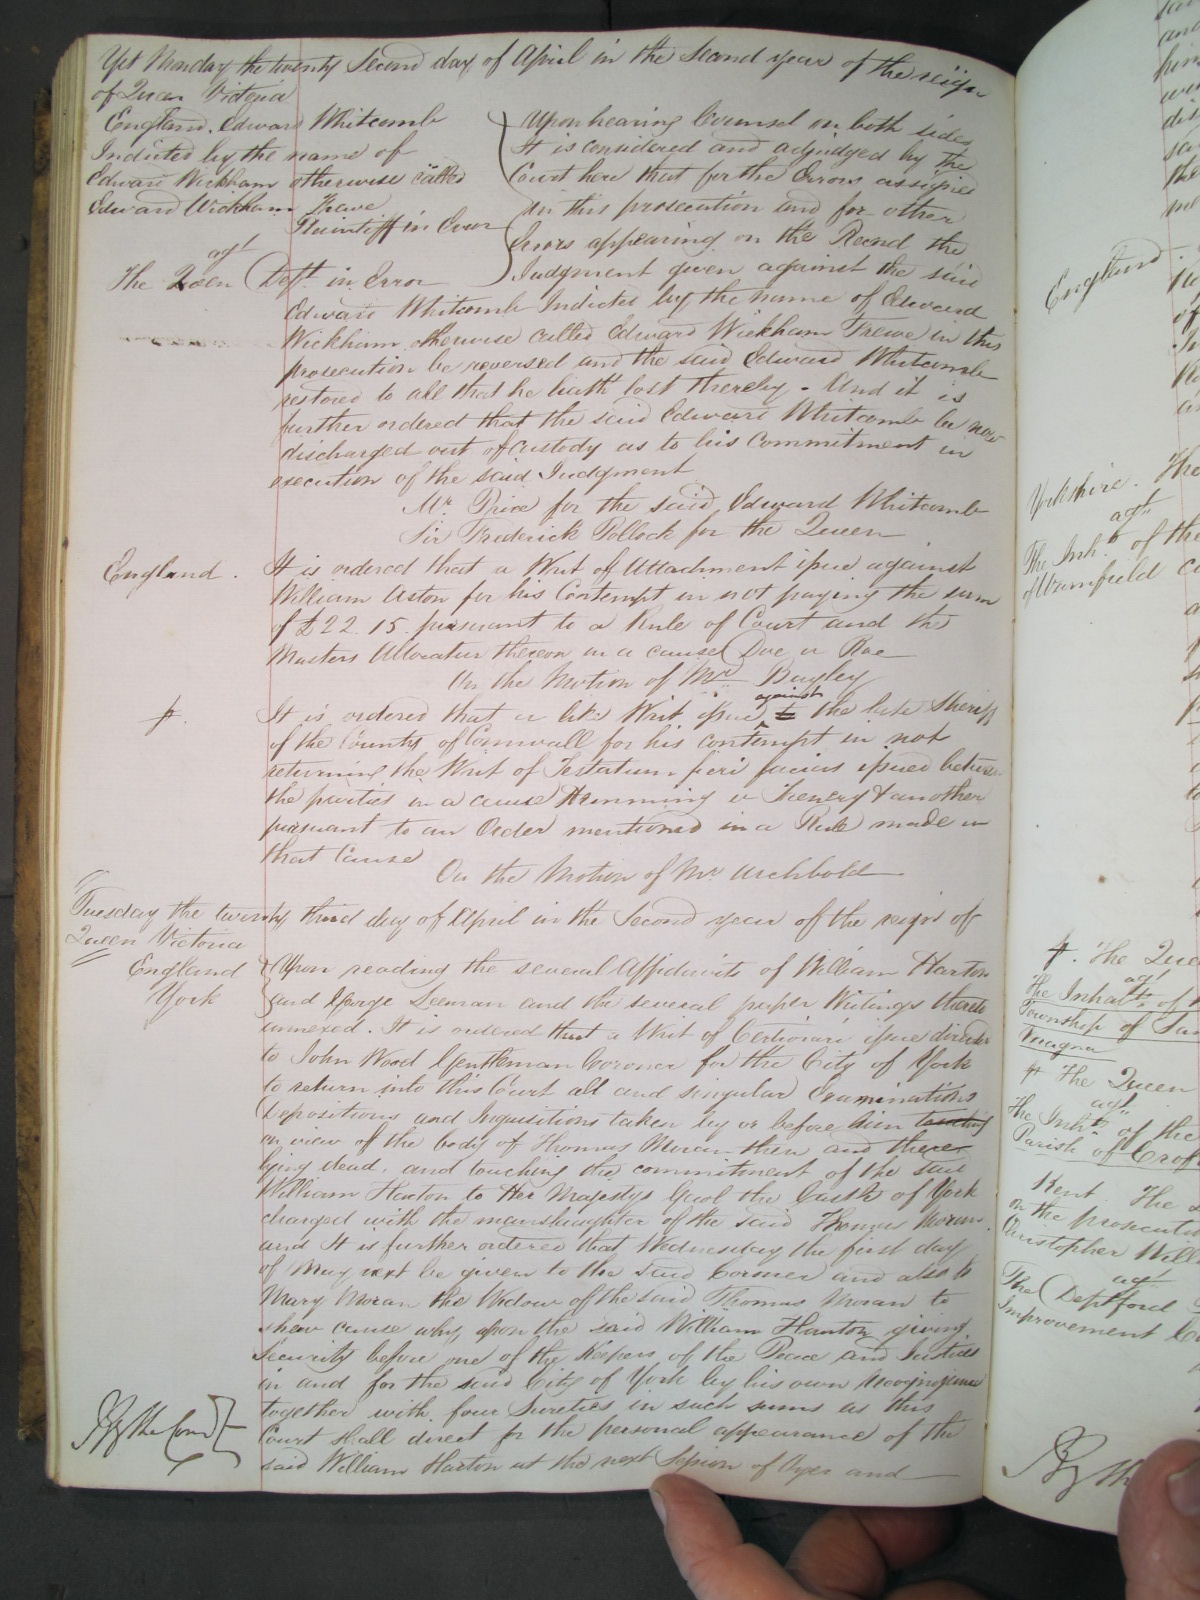 Yet Monday the twenty Second day of April in the second year of the reign
of Queen Victoria
England. Edward Whitcomb
Indicted by the name of
Edward Wickham otherwise called
Edward Wickham Trewe
Plaintiff in Error
agt
The Queen Deft. in Error
Upon hearing Counsel on both sides
It is considered and adjudged by the
Court here that for the Errors assigned
in this prosecution and for other
Errors appearing on the Record the
Judgment given against the said
Edward Whitcomb Indicted by the name of Edward
Wickham otherwise called Edward Wickham Trewe in this
prosecution be reversed and the said Edward Whitcomb
restored to all that he hath lost thereby - And it is
further ordered that the said Edward Whitcomb be now
discharged out of custody as to his Commitment in
execution of the said Judgment
Mr. Price for the said Edward Whitcomb
Sir Frederick Pollock for the Queen
England. It is ordered that a Writ of Attachment issue against
William Aston for his Contempt in not paying the sum
of £22.15. pursuant to a Rule of Court and the
Masters Allocatur thereon in a cause Doe v Roe
On the Motion of Mr. Bayley
It is ordered that a like Writ issue against the late Sheriff
of the County of Cornwall for his contempt in not
returning the Writ of Testatum fieri facias issued between
the parties in a cause Hemming v Thenery & another
pursuant to an Order mentioned in a Rule made in
that Cause
On the Motion of Mr. Archbold
Tuesday the twenty third day of April in the Second year of the reign of
Queen Victoria
England
York
Upon reading the several Affidavits of William Harton
and George Leeman and the several paper Writings thereto
annexed. It is ordered that a Writ of Certiorari issue directed
to John Wood Gentleman Coroner for the City of York
to return into this Court all and singular Examinations
Depositions and Inquisitions taken by or before him touching
on view of the body of Thomas Moran then and there
lying dead, and touching the commitment of the said
William Harton to Her Majestys Gaol the Castle of York
charged with the manslaughter of the said Thomas Moran.
and It is further ordered that Wednesday the first day
of May next be given to the said Coroner and also to
Mary Moran the Widow of the said Thomas Moran to
shew cause why upon the said William Harton giving
Security before one of the Keepers of the Peace and Justices
in and for the said City of York by his own Recognizance
together with four Sureties in such sums as this
Court shall direct for the personal appearance of the
said William Harton at the next Session of Oyer and
By the Court
England
Yorkshire. The
agt
The Inhts. of the
of Warmfield
The Que
agt
The Inhabts. of
Township of
magna
The Queen
agt
The Inhts. of the
Parish of Crof
Kent. The
on the prosecuti
Christopher Will
agt
The Deptford
Improvement Co
By th